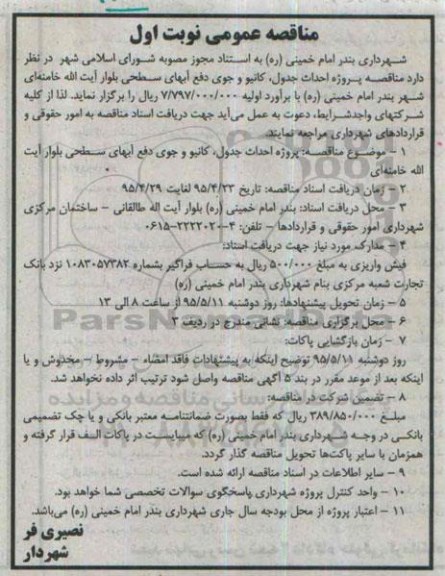 مناقصه عمومی نوبت اول
شهرداری بندر امام خمینی (ره) به استناد مجوز مصوبه شورای اسلامی شهر در نظر
دارد مناقصه پروژه احداث جدول، کانیو و جوی دفع آبهای سطحی بلوار آیت الله خامنه‌ای
شهر بندر امام خمینی (ره) با برآورد اولیه ۷/۷۹۷/۰۰۰/۰۰۰ ریال را برگزار نماید. لذا از کلیه
شرکتهای واجدشرایط، دعوت به عمل می‌آید جهت دریافت اسناد مناقصه به امور حقوقی و
قراردادهای شهرداری مراجعه نمایند.
۱ – موضوع مناقصه: پروژه احداث جدول، کانیو و جوی دفع آبهای سطحی بلوار آیت
الله خامنه‌ای
۲ – زمان دریافت اسناد مناقصه: تاریخ ۹۵/۴/۲۳ لغایت ۹۵/۴/۲۹
۳ – محل دریافت اسناد: بندر امام خمینی (ره) بلوار آیت اله طالقانی – ساختمان مرکزی
شهرداری امور حقوقی و قراردادها – تلفن: ۴–۲۲۲۲۰۲۰–۰۶۱۵
۴ – مدارک مورد نیاز جهت دریافت اسناد:
فیش واریزی به مبلغ ۵۰۰/۰۰۰ ریال به حساب فراگیر بشماره ۱۰۸۳۰۵۷۳۸۲ نزد بانک
تجارت شعبه مرکزی بنام شهرداری بندر امام خمینی (ره)
۵ – زمان تحویل پیشنهادها: روز دوشنبه ۹۵/۵/۱۱ از ساعت ۸ الی ۱۳
۶ – محل برگزاری مناقصه: نشانی مندرج در ردیف ۳
۷ – زمان بازگشایی پاکات:
روز دوشنبه ۹۵/۵/۱۱ توضیح اینکه به پیشنهادات فاقد امضاء – مشروط – مخدوش و یا
اینکه بعد از موعد مقرر در بند ۵ آگهی مناقصه واصل شود ترتیب اثر داده نخواهد شد.
۸ – تضمین شرکت در مناقصه:
مبلغ ۳۸۹/۸۵۰/۰۰۰ ریال که فقط بصورت ضمانتنامه معتبر بانکی و یا چک تضمینی
بانکی در وجه شهرداری بندر امام خمینی (ره) که میبایست در پاکات الف قرار گرفته و
همزمان با سایر پاکت‌ها تحویل مناقصه گذار گردد.
۹ – سایر اطلاعات در اسناد مناقصه ارائه شده است.
۱۰ – واحد کنترل پروژه شهرداری پاسخگوی سوالات تخصصی شما خواهد بود.
۱۱ – اعتبار پروژه از محل بودجه سال جاری شهرداری بندر امام خمینی (ره) می‌باشد.
نصیری فر
شهردار
ParsNamadData